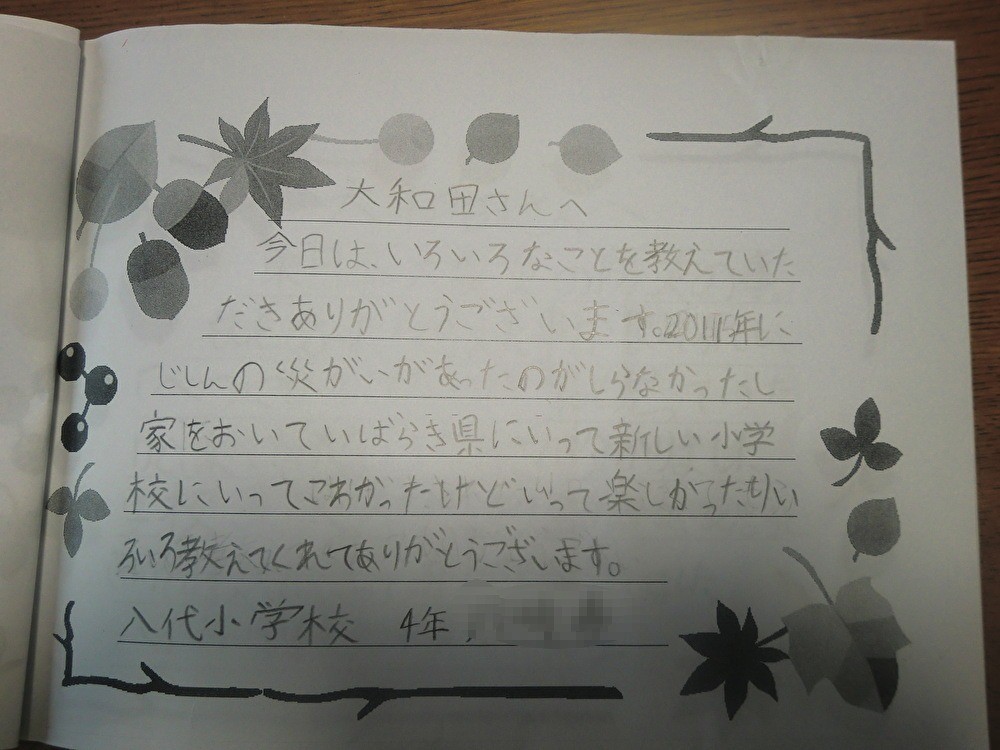 大和田さんへ
今日は、いろいろなことを教えていた
だきありがとうございます。2011年に
じしんの災がいがあったのがしらなかったし
家をおいていばらき県にいって新しい小学
校にいってこわかったけどいって楽しかったりい
ろいろ教えてくれてありがとうございます。
八代小学校 4年